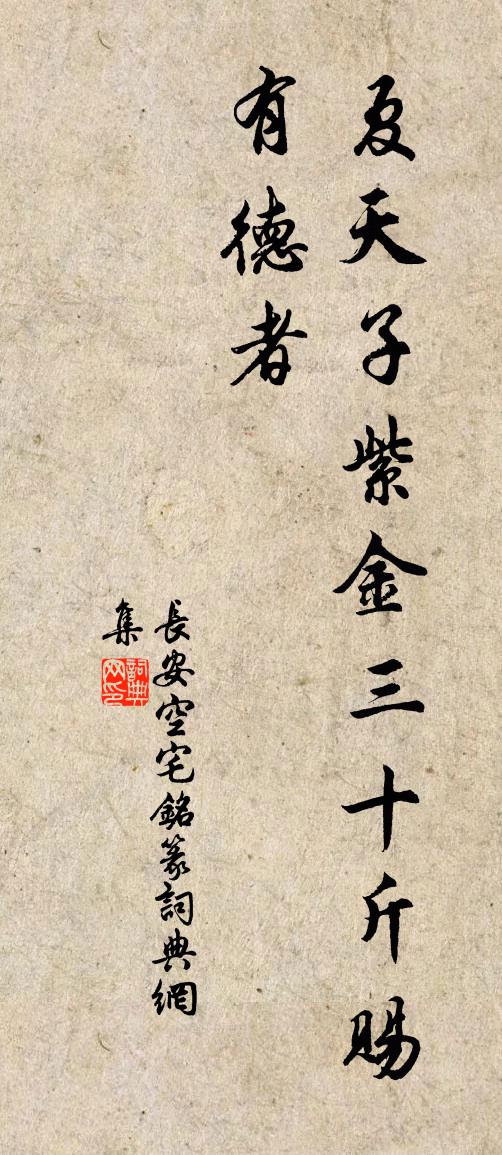 夏天子紫金三十斤賜
有德者
長安空宅銘篆詞典網
集
詞典
网印